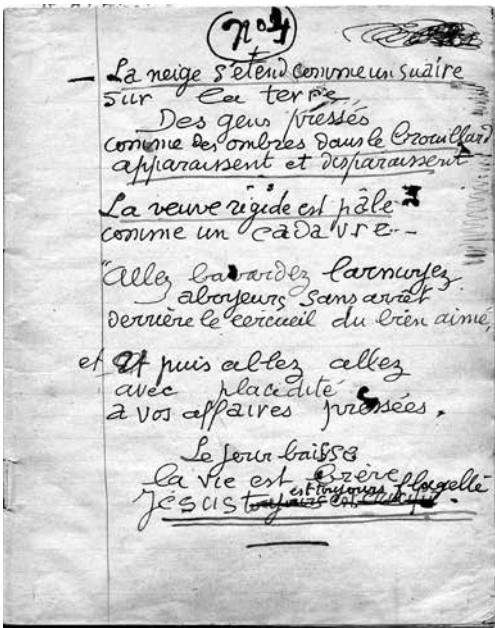 n°4
— La neige s'étend comme un suaire
sur la terre
Des gens pressés
comme des ombres dans le brouillard
apparaissent et disparaissent
La veuve rigide est pâle
comme un cadavre --
"Allez bavardez larmoyez
aboyeurs sans arrêt
derrière le cercueil du bien aimé,
et Et puis allez allez
avec placidité
à vos affaires pressées.
Le jour baisse
la vie est brève
Jésus est toujours flagellé.